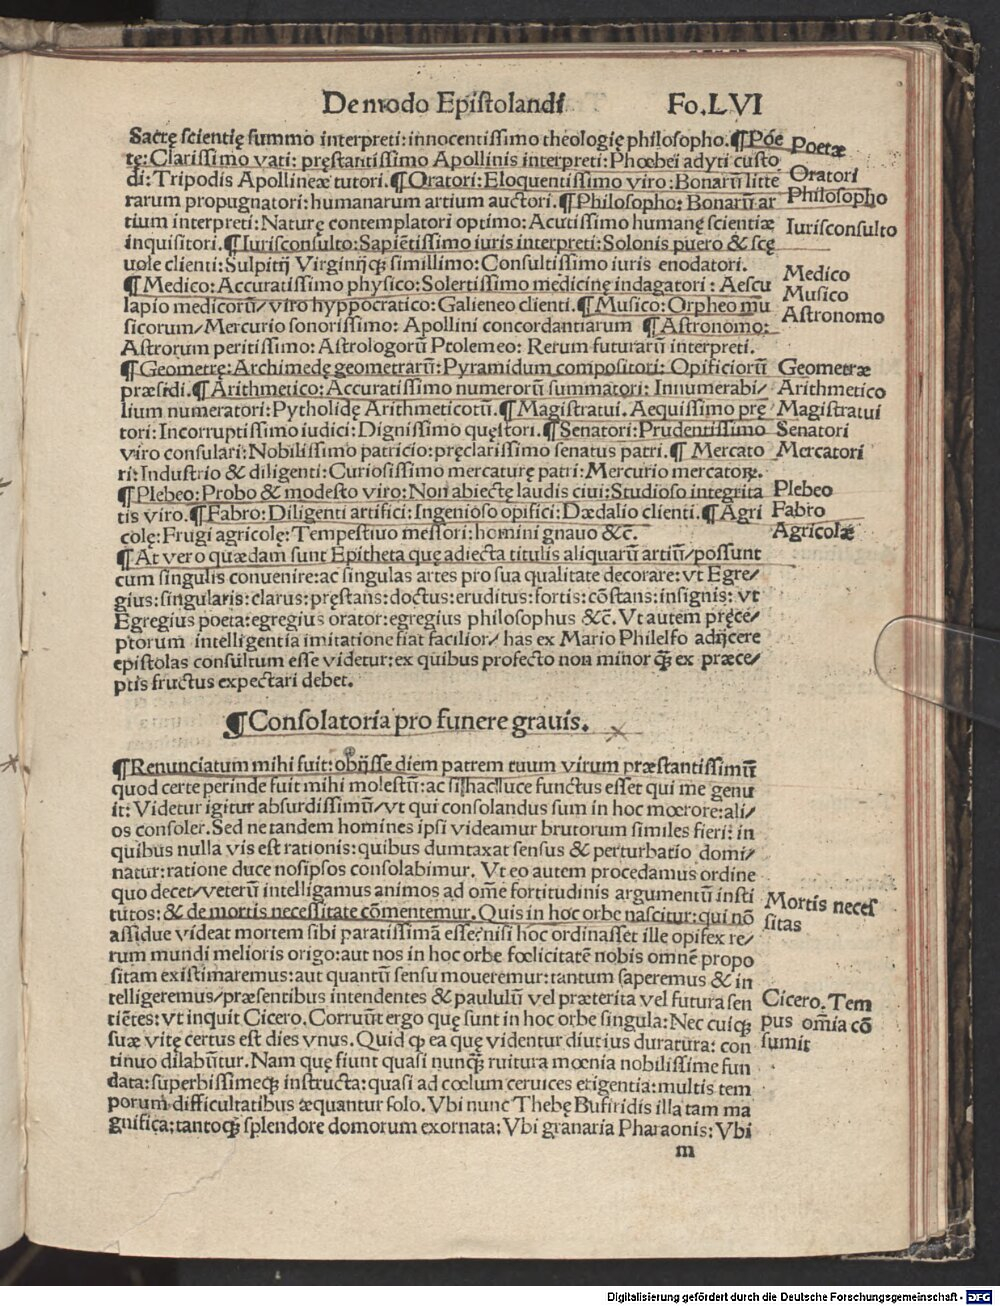 De modo Epistolandi Fo.LVI
Sacrę scientię summo interpreti: innocentissimo theologię philosopho. ¶ Poe Poetæ
tę: Clarissimo vati: pręstantissimo Apollinis interpreti: Phœbei adyti custo
di: Tripodis Apollineæ tutori. ¶ Oratori: Eloquentissimo viro: Bonarū litte Oratori
rarum propugnatori: humanarum artium auctori. ¶ Philosopho: Bonarū ar Philosopho
tium interpreti: Naturę contemplatori optimo: Acutissimo humanę scientiæ
inquisitori. ¶ Iurisconsulto: Sapiētissimo iuris interpreti: Solonis puero & scę Iurisconsulto
uole clienti: Sulpitij Virginijq; simillimo: Consultissimo iuris enodatori.
¶ Medico: Accuratissimo physico: Solertissimo medicinę indagatori: Aescu Medico
lapio medicorū/ viro hyppocratico: Galieneo clienti. ¶ Musico: Orpheo mu Musico
sicorum/ Mercurio sonorissimo: Apollini concordantiarum ¶ Astronomo: Astronomo
Astrorum peritissimo: Astrologorū Ptolemeo: Rerum futurarū interpreti.
¶ Geometrę: Archimedę geometrarū: Pyramidum compositori: Opificiorū Geometræ
præsidi. ¶ Arithmetico: Accuratissimo numerorū summatori: Innumerabi/ Arithmetico
lium numeratori: Pytholidę Arithmeticorū. ¶ Magistratui. Aequissimo prę Magistratui
tori: Incorruptissimo iudici: Dignissimo quęstori. ¶ Senatori: Prudentissimo Senatori
viro consulari: Nobilissimo patricio: pręclarissimo senatus patri. ¶ Mercato Mercatori
ri: Industrio & diligenti: Curiosissimo mercaturę patri: Mercurio mercatoꝝ.
¶ Plebeo: Probo & modesto viro: Non abiectę laudis ciui: Studioso integrita Plebeo
tis viro. ¶ Fabro: Diligenti artifici: Ingenioso opifici: Dædalio clienti. ¶ Agri Fabro
colę: Frugi agricolę: Tempestiuo messori: homini gnauo &c̄. Agricolæ
¶ At vero quædam sunt Epitheta quę adiecta titulis aliquarū artiū/ possunt
cum singulis conuenire: ac singulas artes pro sua qualitate decorare: vt Egre/
gius: singularis: clarus: pręstans: doctus: eruditus: fortis: cōstans: insignis: vt
Egregius poeta: egregius orator: egregius philosophus &c̄. Vt autem pręce/
ptorum intelligentia imitatione fiat facilior/ has ex Mario Philelfo adijcere
epistolas consultum esse videtur: ex quibus profecto non minor q̄; ex præce/
ptis fructus expectari debet.
¶ Consolatoria pro funere grauis.
¶ Renunciatum mihi fuit: obijsse diem patrem tuum virum præstantissimū
quod certe perinde fuit mihi molestū: ac si hac luce functus esset qui me genu
it: Videtur igitur absurdissimū/ vt qui consolandus sum in hoc mœrore: ali/
os consoler. Sed ne tandem homines ipsi videamur brutorum similes fieri: in
quibus nulla vis est rationis: quibus dumtaxat sensus & perturbatio domi/
natur: ratione duce nosipsos consolabimur. Vt eo autem procedamus ordine
quo decet/ veterū intelligamus animos ad om̄e fortitudinis argumentū insti Mortis neces
tutos: & de mortis necessitate cōmentemur. Quis in hoc orbe nascitur: qui nō sitas
assidue videat mortem sibi paratissimā esse: nisi hoc ordinasset ille opifex re/
rum mundi melioris origo: aut nos in hoc orbe fœlicitatē nobis omnē propo
sitam existimaremus: aut quantū sensu moueremur: tantum saperemus & in
telligeremus/ præsentibus intendentes & paululū vel præterita vel futura sen Cicero. Tem
tiētes: vt inquit Cicero. Corruūt ergo quę sunt in hoc orbe singula: Nec cuiq; pus om̄ia cō
suæ vitę certus est dies vnus. Quid q; ea quę videntur diutius duratura: con sumit
tinuo dilabūtur. Nam quę fiunt quasi nunq̄; ruitura mœnia nobilissime fun
data: superbissimeq; instructa: quasi ad cœlum ceruices erigentia: multis tem
porum difficultatibus æquantur solo. Vbi nunc Thebę Busiridis illa tam ma
gnifica: tantoq; splendore domorum exornata: Vbi granaria Pharaonis: Vbi
m
Digitalisierung gefördert durch die Deutsche Forschungsgemeinschaft - DFG